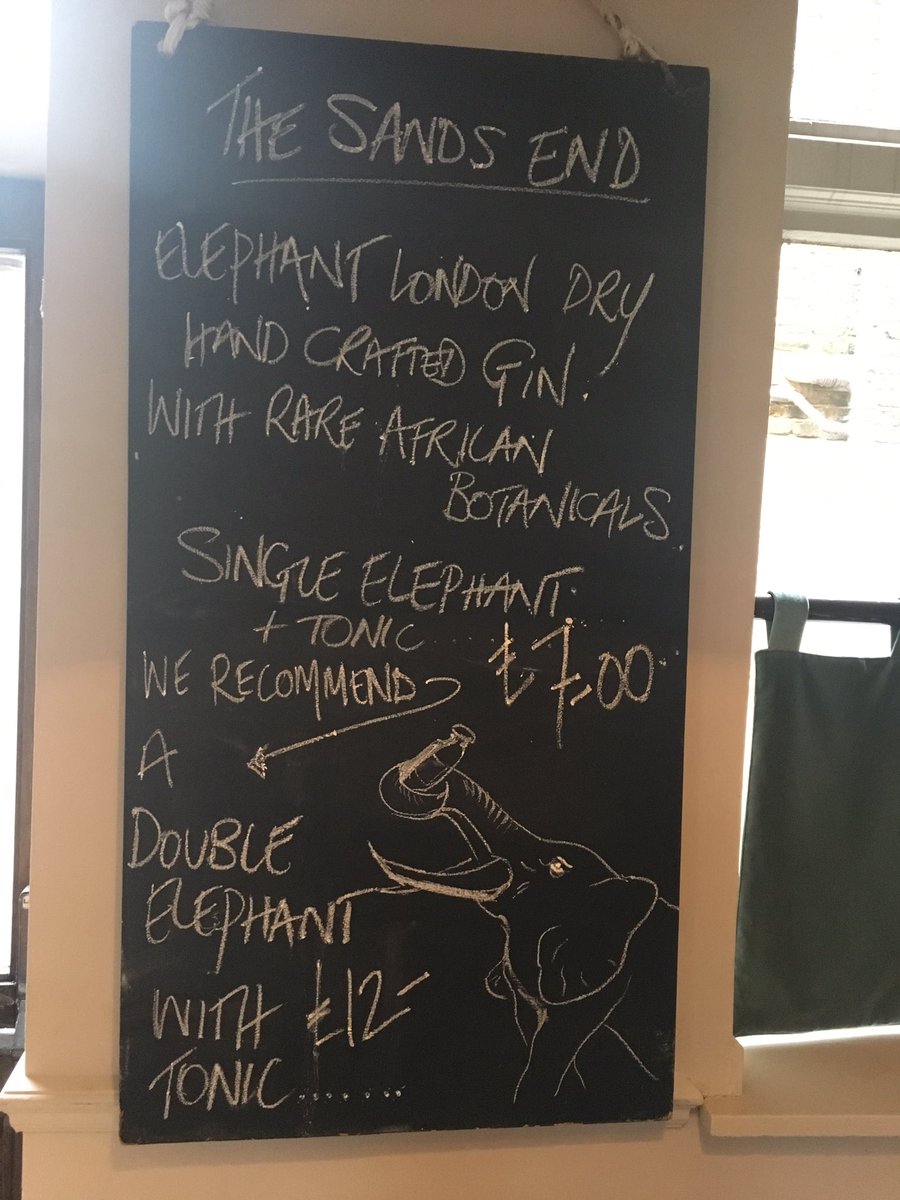 THE SANDS END
ELEPHANT LONDON DRY
HAND CRAFTED GIN.
WITH RARE AFRICAN
BOTANICALS.
SINGLE ELEPHANT
+ TONIC
£7.00
WE RECOMMEND
A
DOUBLE
ELEPHANT
WITH £12-
TONIC.......